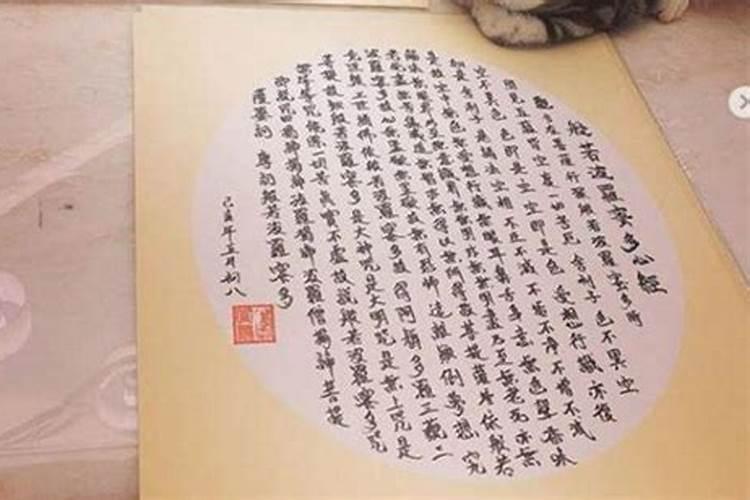 般若波羅蜜多心經
觀自在菩薩行深般若波羅蜜多時
照見五蘊皆空度一切苦厄舍利子色不異空
空不異色色即是空空即是色受想行識亦復
如是舍利子是諸法空相不生不滅不垢不淨不增不減
是故空中無色無受想行識無眼耳鼻舌身意無色聲香味
觸法無眼界乃至無意識界無無明亦無無明盡乃至無老死亦無
老死盡無苦集滅道無智亦無得以無所得故菩提薩埵依般若
波羅蜜多故心無罣礙無罣礙故無有恐怖遠離顛倒夢想究
竟涅槃三世諸佛依般若波羅蜜多故得阿耨多羅三藐三
菩提故知般若波羅蜜多是大神咒是大明咒是無上咒是
無等等咒能除一切苦真實不虛故說般若波羅蜜多咒
即說咒曰揭諦揭諦波羅揭諦波羅僧揭諦菩提
薩婆訶 摩訶般若波羅蜜多
己亥年三月初八